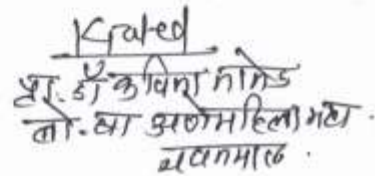 Kamed
प्रा. डॉ कविता तामेड
लो. बा अणे महिला महा.
यवतमाळ.